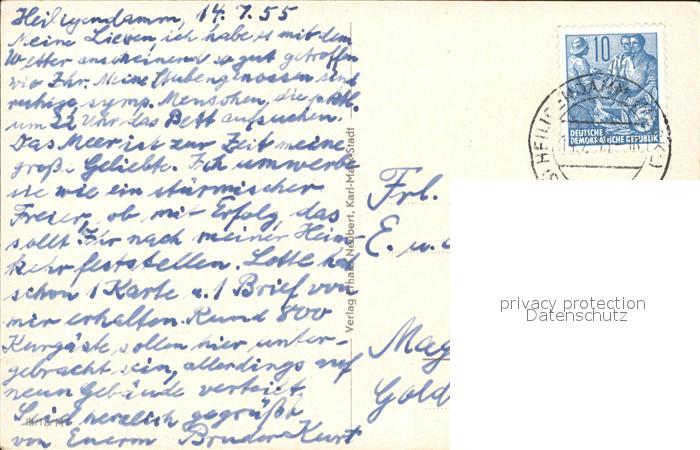 Heiligendamm, 14.7.55
Meine Lieben, ich habe es mit dem
Wetter anscheinend so gut getroffen
wie Ihr. Meine Stubengenossen sind
ruhige, symp. Menschen, die pktl.
um 22 Uhr das Bett aufsuchen.
Das Meer ist zur Zeit meine
große Geliebte. Ich umwerbe
sie wie ein stürmischer
Freier, ob mit Erfolg, das
sollt Ihr nach meiner Heim-
kehr feststellen. Lotte hat
schon 1 Karte u. 1 Brief von
mir erhalten. Rund 800
Kurgäste sollen hier unter-
gebracht sein, allerdings auf
neun Gebäude verteilt.
Seid herzlich gegrüßt
von Euerm Bruder Kurt
Verlag Erhard Neubert, Karl-Marx-Stadt
10
DEUTSCHE
DEMOKRATISCHE REPUBLIK
HEILIGENDAMM
Frl.
E. u.
Mag
Gold
privacy protection
Datenschutz